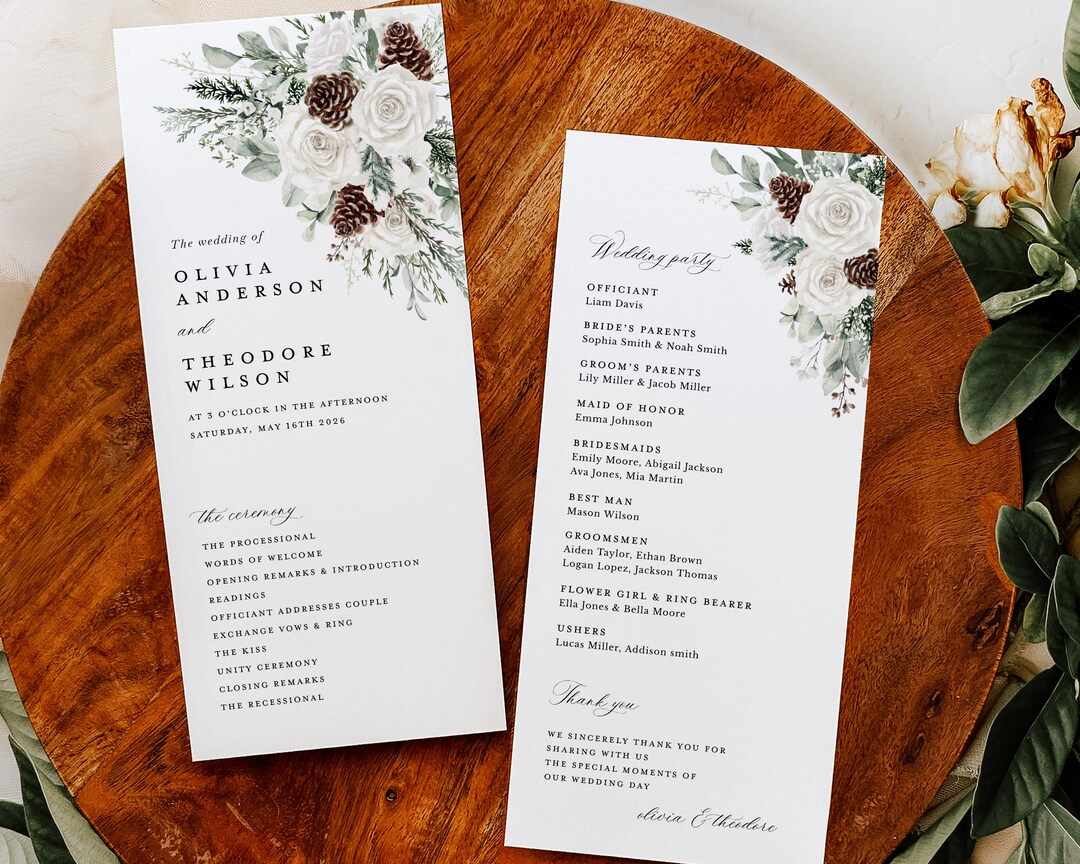 The wedding of
OLIVIA
ANDERSON
and
THEODORE
WILSON
AT 3 O'CLOCK IN THE AFTERNOON
SATURDAY, MAY 16TH 2026
the ceremony
THE PROCESSIONAL
WORDS OF WELCOME
OPENING REMARKS & INTRODUCTION
READINGS
OFFICIANT ADDRESSES COUPLE
EXCHANGE VOWS & RING
THE KISS
UNITY CEREMONY
CLOSING REMARKS
THE RECESSIONAL
Wedding party
OFFICIANT
Liam Davis
BRIDE'S PARENTS
Sophia Smith & Noah Smith
GROOM'S PARENTS
Lily Miller & Jacob Miller
MAID OF HONOR
Emma Johnson
BRIDESMAIDS
Emily Moore, Abigail Jackson
Ava Jones, Mia Martin
BEST MAN
Mason Wilson
GROOMSMEN
Aiden Taylor, Ethan Brown
Logan Lopez, Jackson Thomas
FLOWER GIRL & RING BEARER
Ella Jones & Bella Moore
USHERS
Lucas Miller, Addison smith
Thank you
WE SINCERELY THANK YOU FOR
SHARING WITH US
THE SPECIAL MOMENTS OF
OUR WEDDING DAY
olivia & theodore